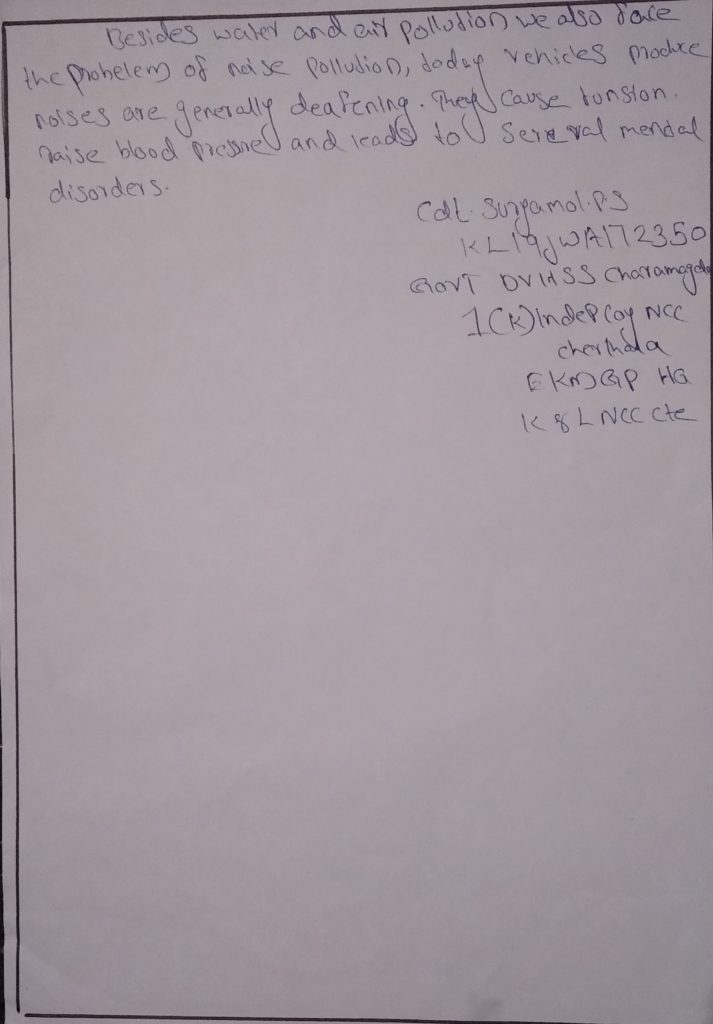 Besides water and air pollution we also face
the probelem of noise pollution, today vehicles produce
noises are generally deafening. They cause tonsion.
raise blood presure and leads to several mental
disorders.
Cdt. Suryamol.P.S
KL19JWA172350
GOVT DVHSS Charamagala
1(K) Indep Coy NCC
cherthala
EKM GP HQ
K & L NCC Cte